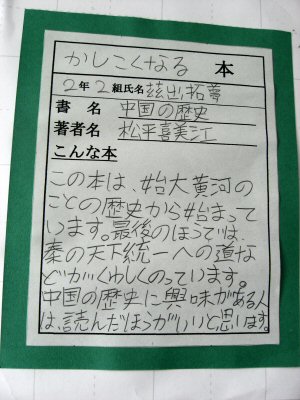 かしこくなる 本
2年2組氏名 茲出拓夢
書名 中国の歴史
著者名 松平喜美江
こんな本
この本は、始大黄河の
ことの歴史から始まって
います。最後のほうでは、
秦の天下統一への道な
どがくわしくのっています。
中国の歴史に興味がある人
は、読んだほうがいいと思います。